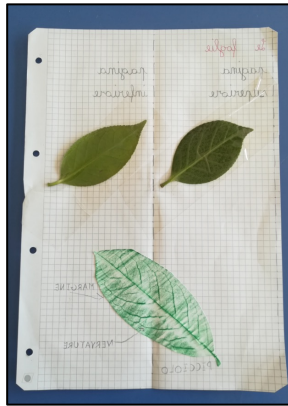 le foglie
pagina
superiore
pagina
inferiore
MARGINE
NERVATURE
PICCIOLO